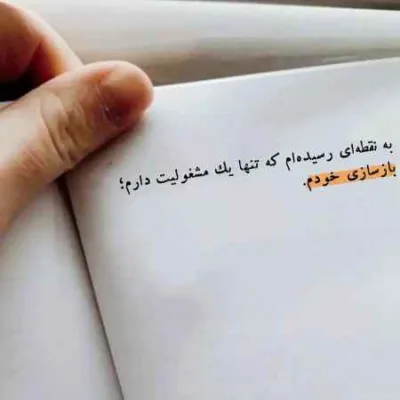 به نقطه‌ای رسیده‌ام که تنها یك مشغولیت دارم؛
بازسازی خودم.